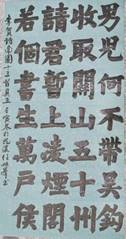 男兒何不帶吳鉤
收取關山五十州
請君暫上凌煙閣
若個書生萬戶侯
李賀詩南園十三首其五